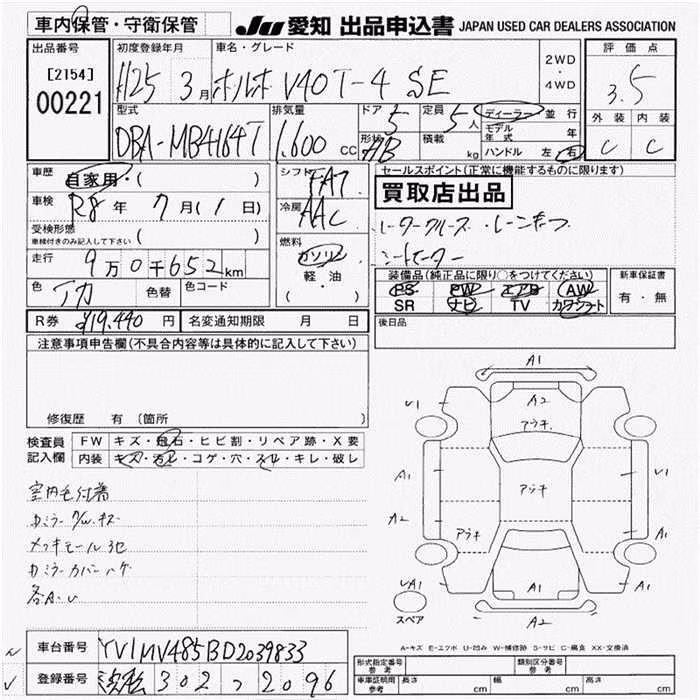 車内保管・守衛保管
JU 愛知 出品申込書 JAPAN USED CAR DEALERS ASSOCIATION
出品番号 初度登録年月 車名・グレード 2WD・4WD 評価点
[2154] 00221
H25 3月 ボルボ V40 T-4 SE 3.5
型式 排気量 ドア 定員 ディーラー 並行 外装 内装
DBA-MB4164T 1.600 cc 5 5人 モデル年式 年 C C
形状 積載 kg ハンドル 左 右
車歴 自家用・( ) シフト FAT セールスポイント(正常に機能するものに限ります)
買取店出品
車検 R8年 7月(1日) 冷房 AAC
レーダークルーズ ・レーンたつ
受検形態 車検付きのみ記入して下さい ( ) 燃料 ガソリン・軽・油 ( ・ )
シートヒーター
走行 9万0千652km
装備品(純正品に限り○をつけてください) 新車保証書
PS PW エアB AW 有・無
SR ナビ TV カワシート
色 アカ 色替 色コード
R券 ¥19,440円 名変通知期限 月 日 後日品
注意事項申告欄(不具合内容等は具体的に記入して下さい)
修復歴 有 (箇所 )
検査員記入欄 FW キズ・飛石・ヒビ割・リペア跡・X要
内装 キズ・汚レ・コゲ・穴・スレ・キレ・破レ
室内毛付着
カミラーウィンキズ
メッキモール劣化
カミラーカバーハゲ
各A・U
A1
A2
アラキ
V1
A1
アラキ
V1
A2
アラキ
A1
UA1
A1
A1
A2
スペア
A-キズ E-エクボ U-凹み W-補修跡 S-サビ C-腐食 XX-交換済
車台番号 YV1MV485BD2039833
登録番号 浜松 302 つ 2096
形式指定番号 参考 類別区分番号 参考
車庫証明用 参考 長さ cm 幅 cm 高さ cm